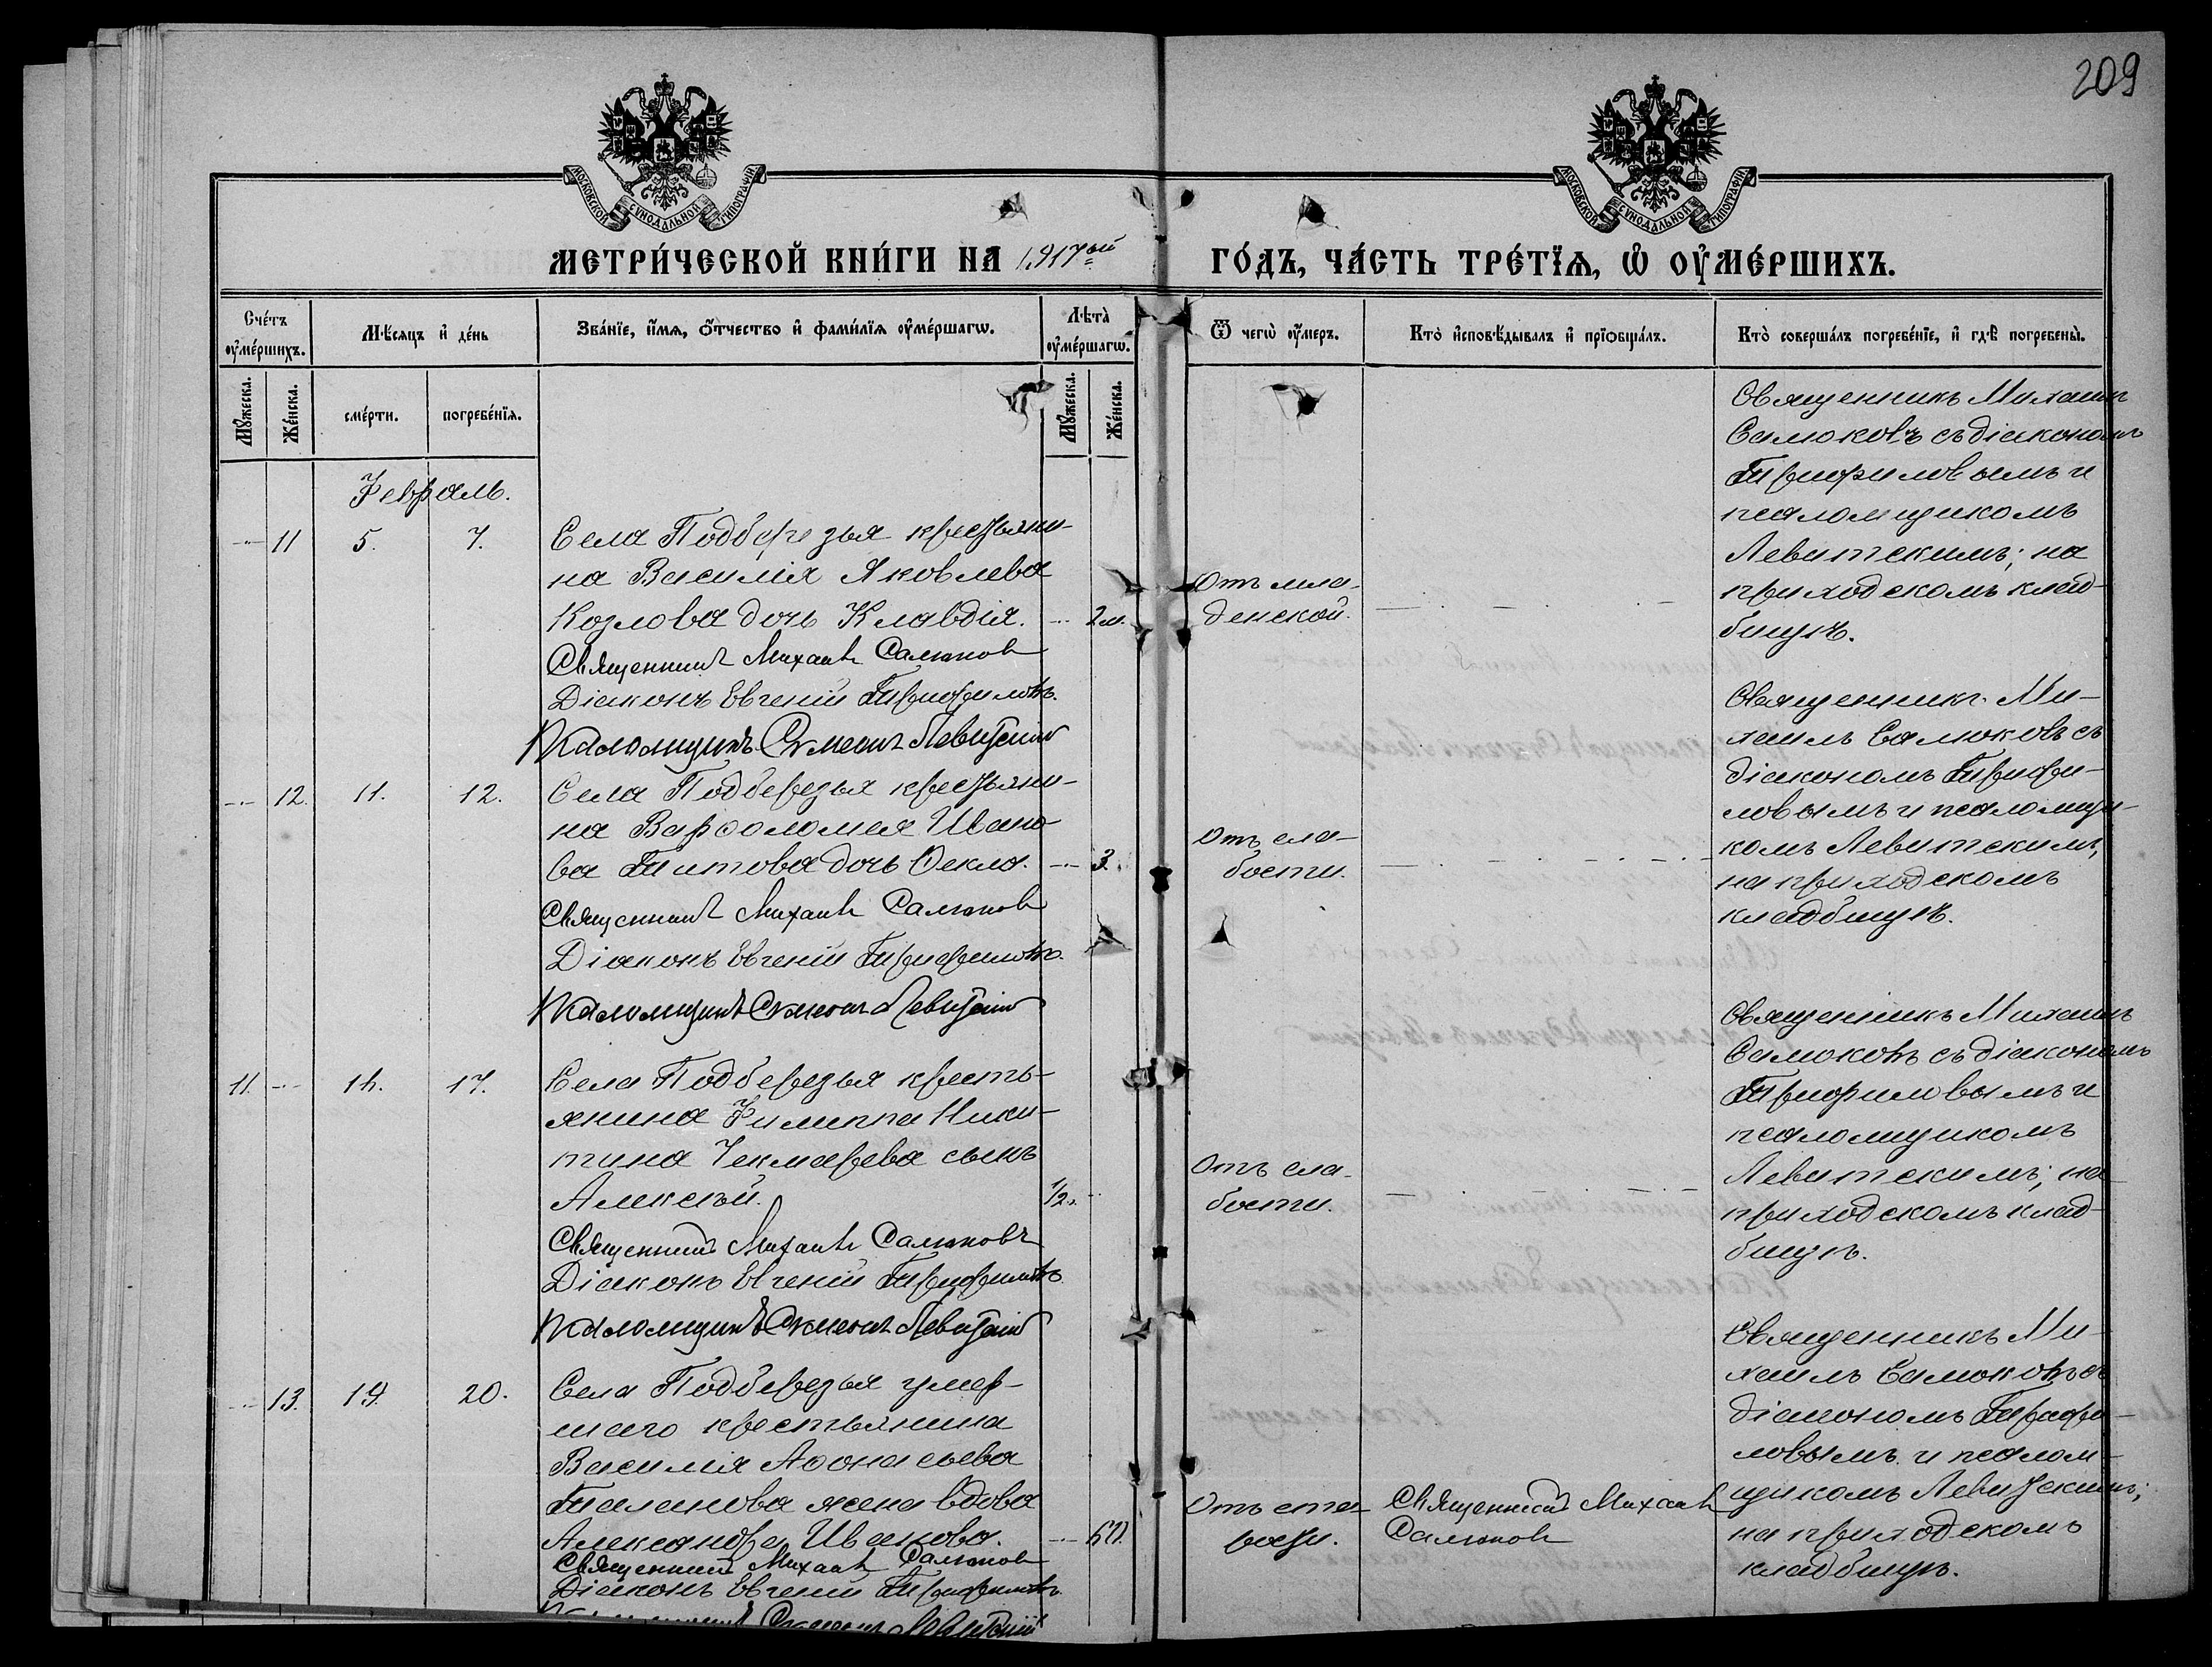 209
МОСКОВСКОЙ СУНОДАЛЬНОЙ ТИПОГРАФІИ
МОСКОВСКОЙ СУНОДАЛЬНОЙ ТИПОГРАФІИ
МЕТРИ́ЧЕСКОЙ КНИ́ГИ НА 1917ый ГО́ДЪ, ЧА́СТЬ ТРЕ́ТЇѦ, Ѡ҆ ОУ҆МЕ́РШИХЪ.
Сче́тъ оу҆ме́ршихъ.
Мѣсяцъ и҆ де́нь
Зва́нїе, и҆́мѧ, ѻ҆́тчество и҆ фами́лїѧ оу҆ме́ршагѡ.
Лѣ́та оу҆ме́ршагѡ.
Ѿ чегѡ̀ оу҆́меръ.
Кто̀ и҆сповѣ́дывалъ и҆ прїѻбща́лъ.
Кто̀ соверша́лъ погребе́нїе, и҆ гдѣ̀ погребены̀.
Мꙋ́жеска.
Же́нска.
сме́рти.
погребе́нїѧ.
Мꙋ́жеска.
Же́нска.
Февраль.
11 5. 7.
Села Подберезья крестьяни-
на Василія Яковлева
Козлова дочь Клавдія. 2 м.
Священникъ Михаилъ Самоков
Діаконъ Евгеній Трифиловъ.
Псаломщикъ Симеонъ Левитскій
Отъ мла-
денской.
Священникъ Михаилъ
Самоковъ съ діакономъ
Трифиловымъ и
псаломщикомъ
Левитскимъ; на
приходскомъ клад-
бищѣ.
12. 11. 12.
Села Подберезья крестьяни-
на Варѳоломея Ивано-
ва Титова дочь Ѳекла. 3.
Священникъ Михаилъ Самоков
Діаконъ Евгеній Трифиловъ.
Псаломщикъ Симеонъ Левитскій
Отъ сла-
бости.
Священникъ Ми-
хаилъ Самоковъ съ
діакономъ Трифи-
ловымъ и псаломщи-
комъ Левитскимъ,
на приходскомъ
кладбищѣ.
11. 17.
Села Подберезья кресть-
янина Филиппа Ники-
тина Чекмарева сынъ
Алексѣй. 1/2
Священникъ Михаилъ Самоковъ
Діаконъ Евгеній Трифиловъ.
Псаломщикъ Симеонъ Левитскій
Отъ сла-
бости.
Священникъ Михаилъ
Самоковъ съ діакономъ
Трифиловымъ и
псаломщикомъ
Левитскимъ; на
приходскомъ клад-
бищѣ.
13. 20.
Села Подберезья умер-
шаго крестьянина
Василія Аѳонасьева
Таланова жена вдова
Александра Иванова. 60.
Священникъ Михаилъ Самоков
Діаконъ Евгеній Трифиловъ.
Симеонъ Левитскій
Отъ ста-
рости.
Священникъ Михаилъ
Самоков
Священникъ Ми-
хаилъ Самоковъ съ
діакономъ Трифи-
ловымъ и псалом-
щикомъ Левитскимъ;
на приходскомъ
кладбищѣ.